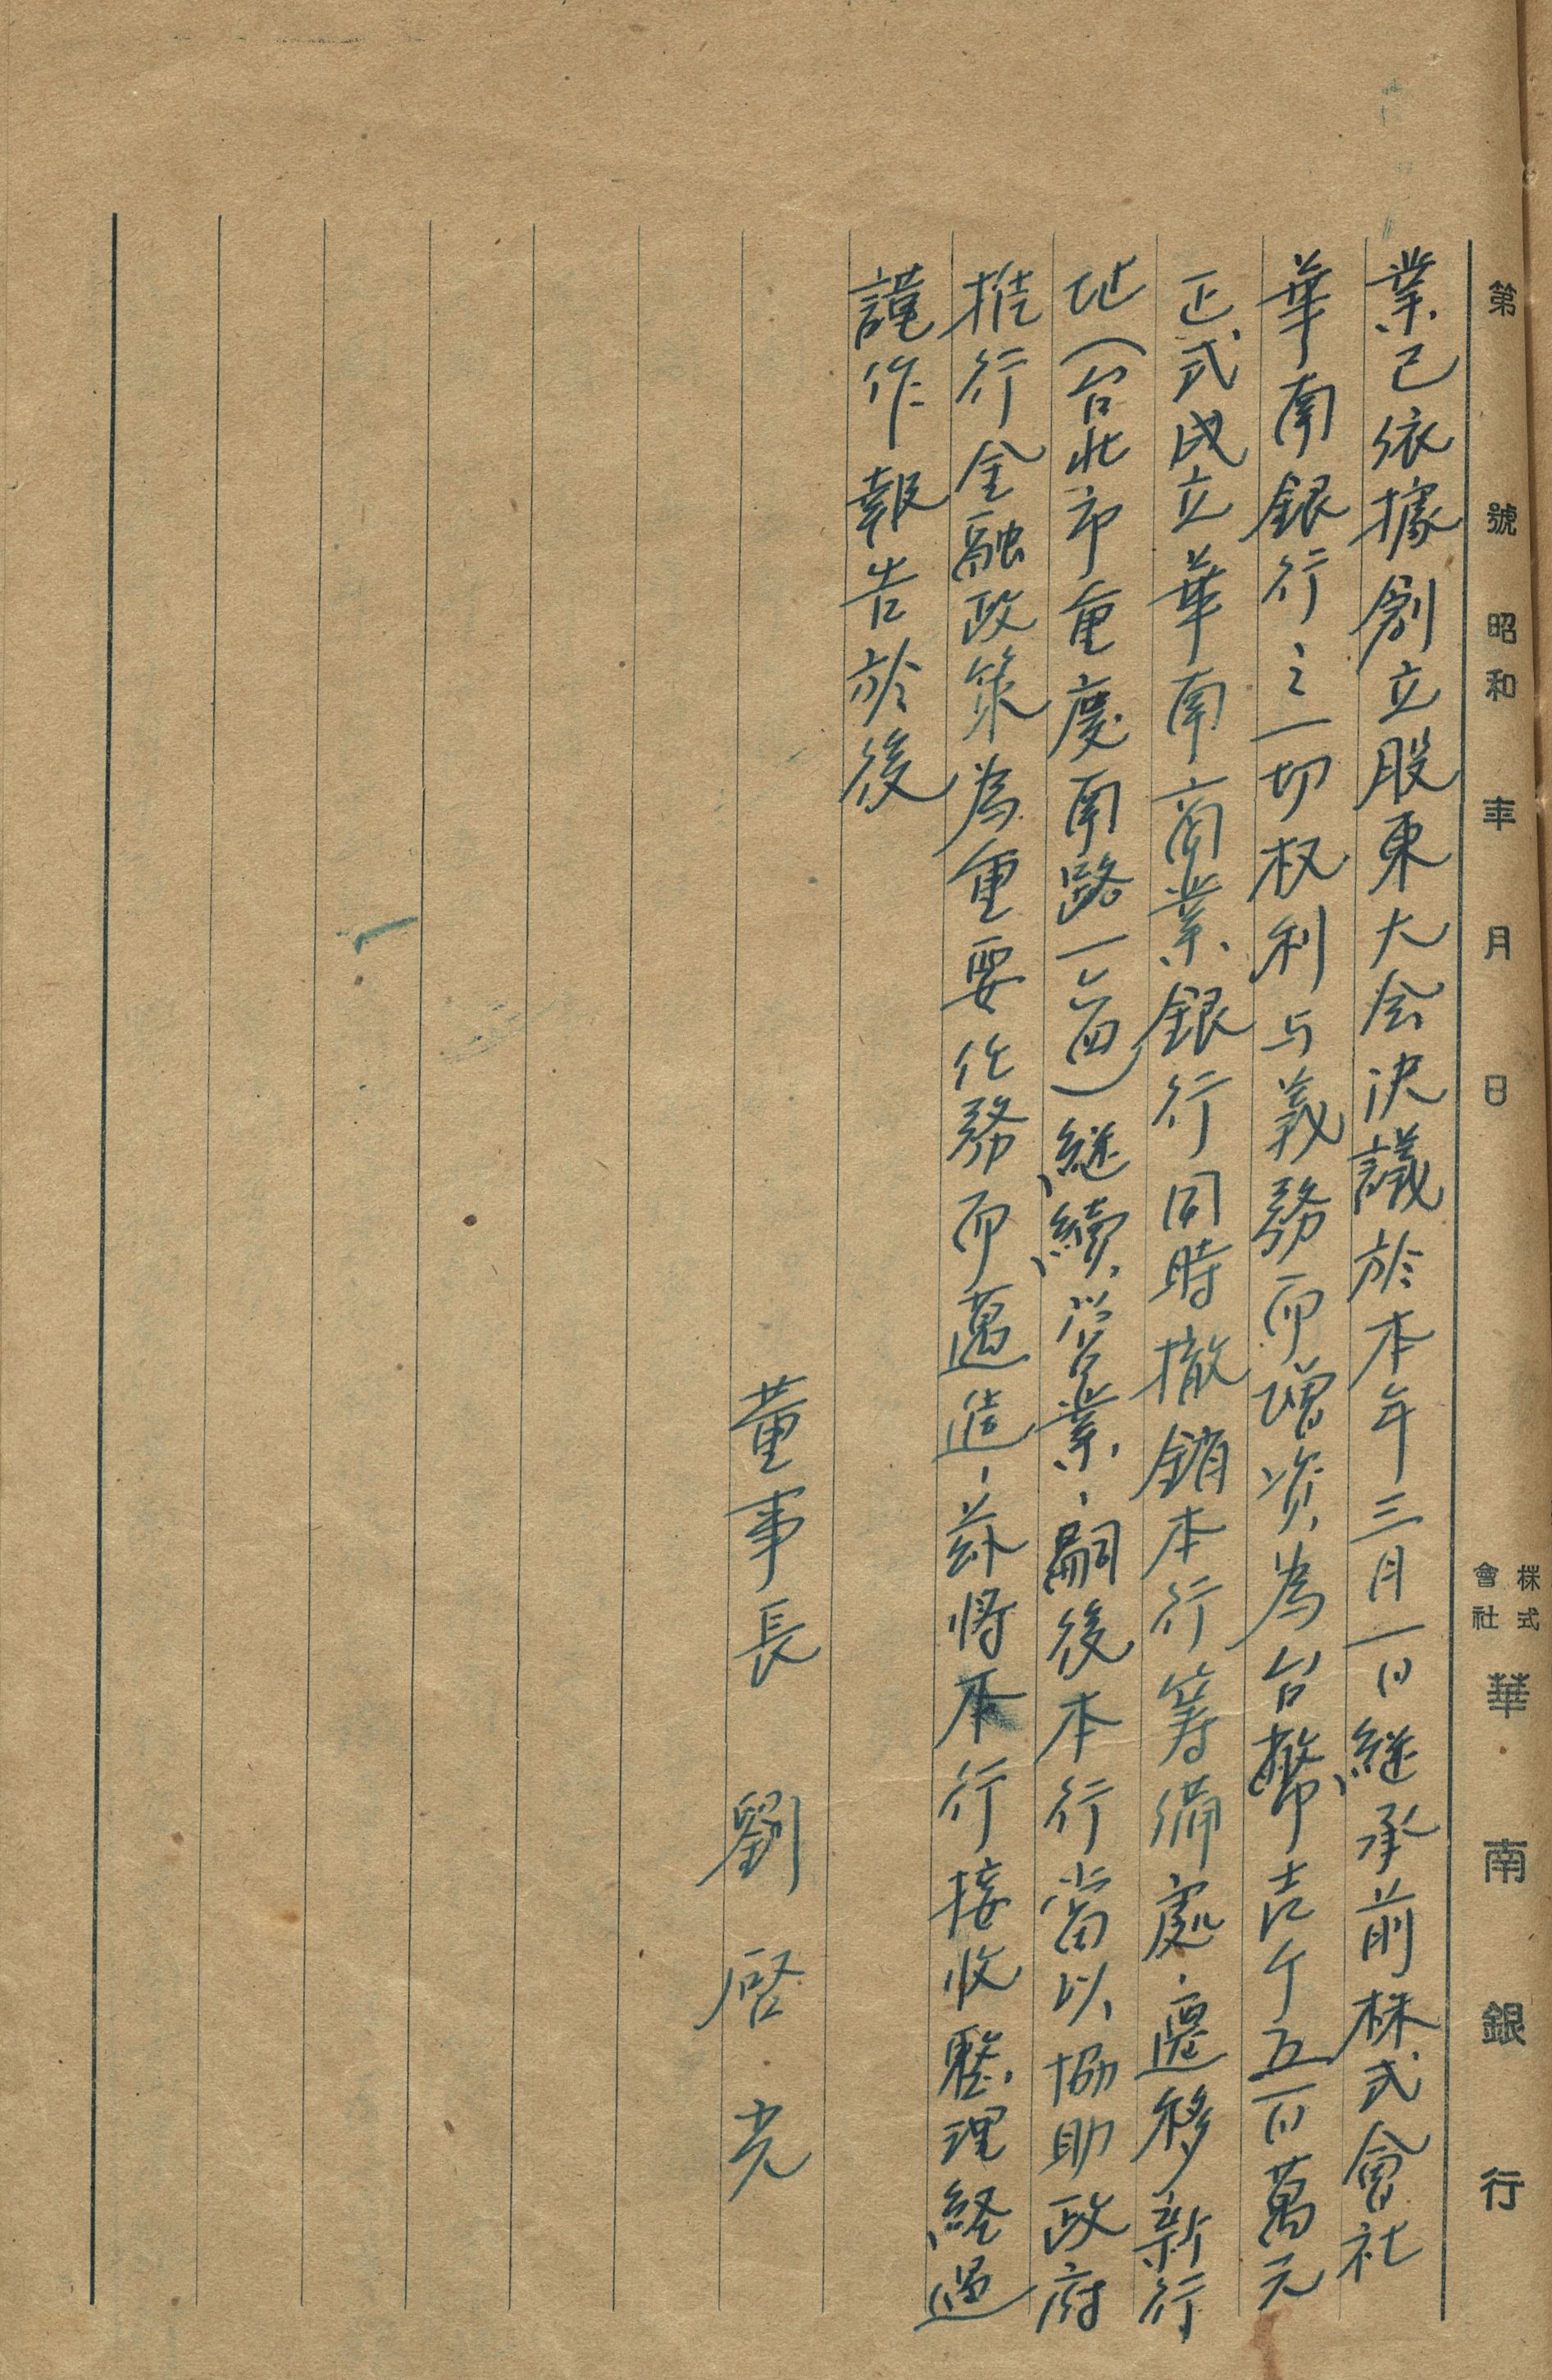 第　號　昭和　年　月　日　株式會社　華南銀行
業已依據創立股東大会決議於本年三月一日継承前株式會社
華南銀行之一切权利与義務而增資為台幣壱千五百萬元
正式成立華南商業銀行同時撤銷本行籌備處、遷移新行
址（台北市重慶南路一段）継續営業、嗣後本行當以協助政府
推行金融政策為重要任務而邁進、茲将本行接收整理経過
謹作報告於後
董事長　劉啓光